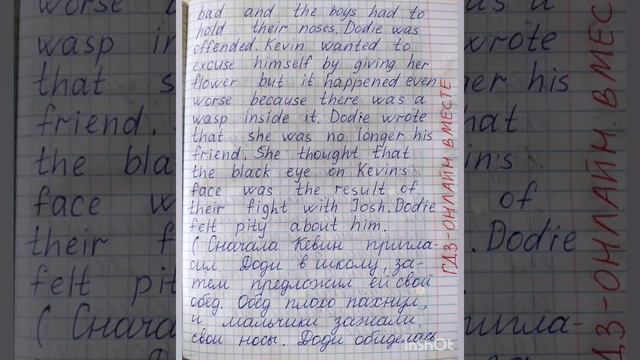 bad and the boys had to
hold their noses. Dodie was
offended. Kevin wanted to
excuse himself by giving her
flower but it happened even
worse because there was a
wasp inside it. Dodie wrote
that she was no longer his
friend. She thought that
the black eye on Kevin's
face was the result of
their fight with Josh. Dodie
felt pity about him.
(Сначала Кевин пригла-
сил Доди в школу, за-
тем предложил ей свой
обед. Обед плохо пахнул,
и мальчики зажали
свои носы. Доди обиделась
ГДЗ-ОНЛАЙН ВМЕСТЕ
InShOt